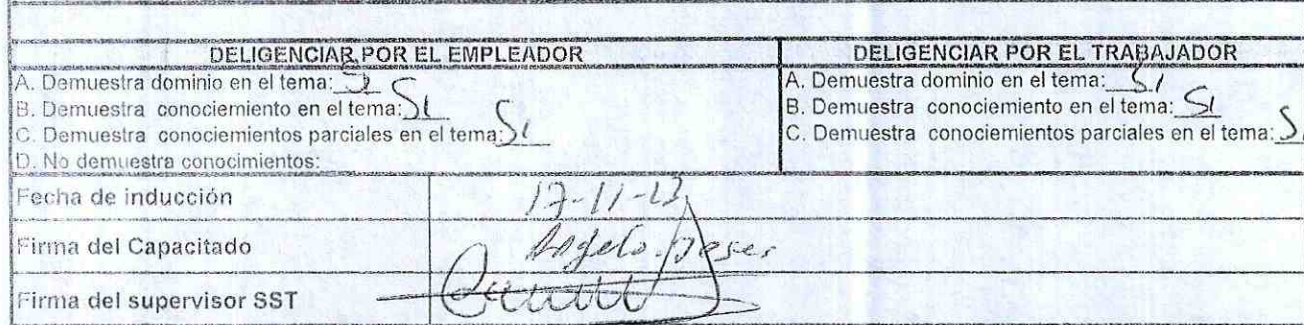 DELIGENCIAR POR EL EMPLEADOR
A. Demuestra dominio en el tema: Si
B. Demuestra conociemiento en el tema: Si
C. Demuestra conociemientos parciales en el tema: Si
D. No demuestra conocimientos:
DELIGENCIAR POR EL TRABAJADOR
A. Demuestra dominio en el tema: Si
B. Demuestra conociemiento en el tema: Si
C. Demuestra conociemientos parciales en el tema: Si
Fecha de inducción 17-11-23
Firma del Capacitado Angelo
Firma del supervisor SST